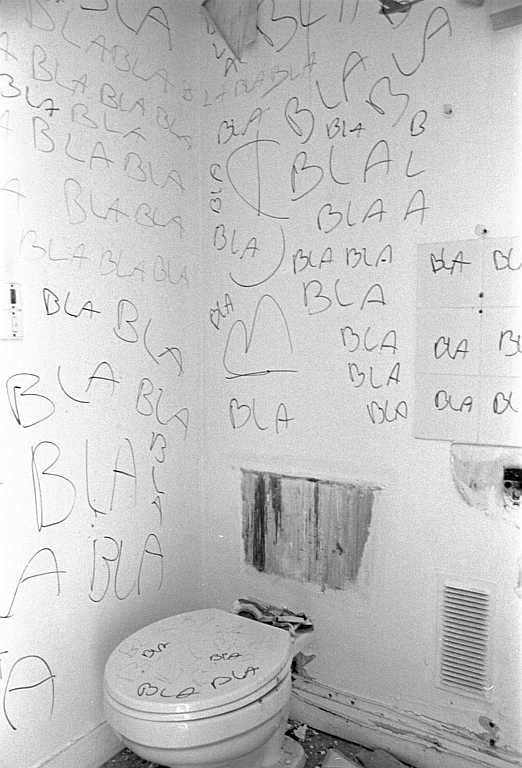 BLA
BLA
BLA BLA
BLA BLA
BLA BLA BLA
BLA BLA
BLA BLA
BLA BLA BLA
BLA BLA
BLA BLA
BLA BLA
BLA
BLA
BLA
BLA BLA
BLA
BLA BLA
BLA
BLA
BLA A
BLA BLA BLA
BLA
BLA
BLA
BLA BLA
BLA
BLA
BLA
BLA
BLA
BLA BLA